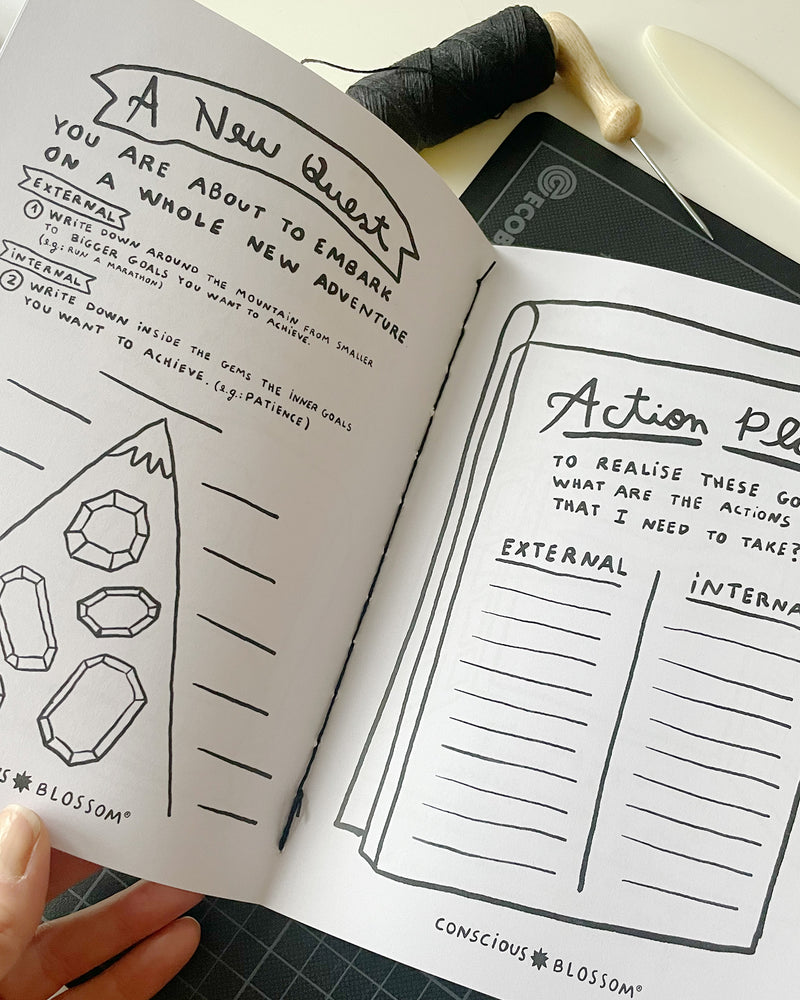 A New Quest
YOU ARE ABOUT TO EMBARK
ON A WHOLE NEW ADVENTURE
EXTERNAL
① WRITE DOWN AROUND THE MOUNTAIN FROM SMALLER
TO BIGGER GOALS YOU WANT TO ACHIEVE.
(e.g.: RUN A MARATHON)
INTERNAL
② WRITE DOWN INSIDE THE GEMS THE INNER GOALS
YOU WANT TO ACHIEVE. (e.g.: PATIENCE)
BLOSSOM®
Action
TO REALISE THESE
WHAT ARE THE ACTIONS
THAT I NEED TO TAKE?
EXTERNAL
CONSCIOUS BLOSSOM®